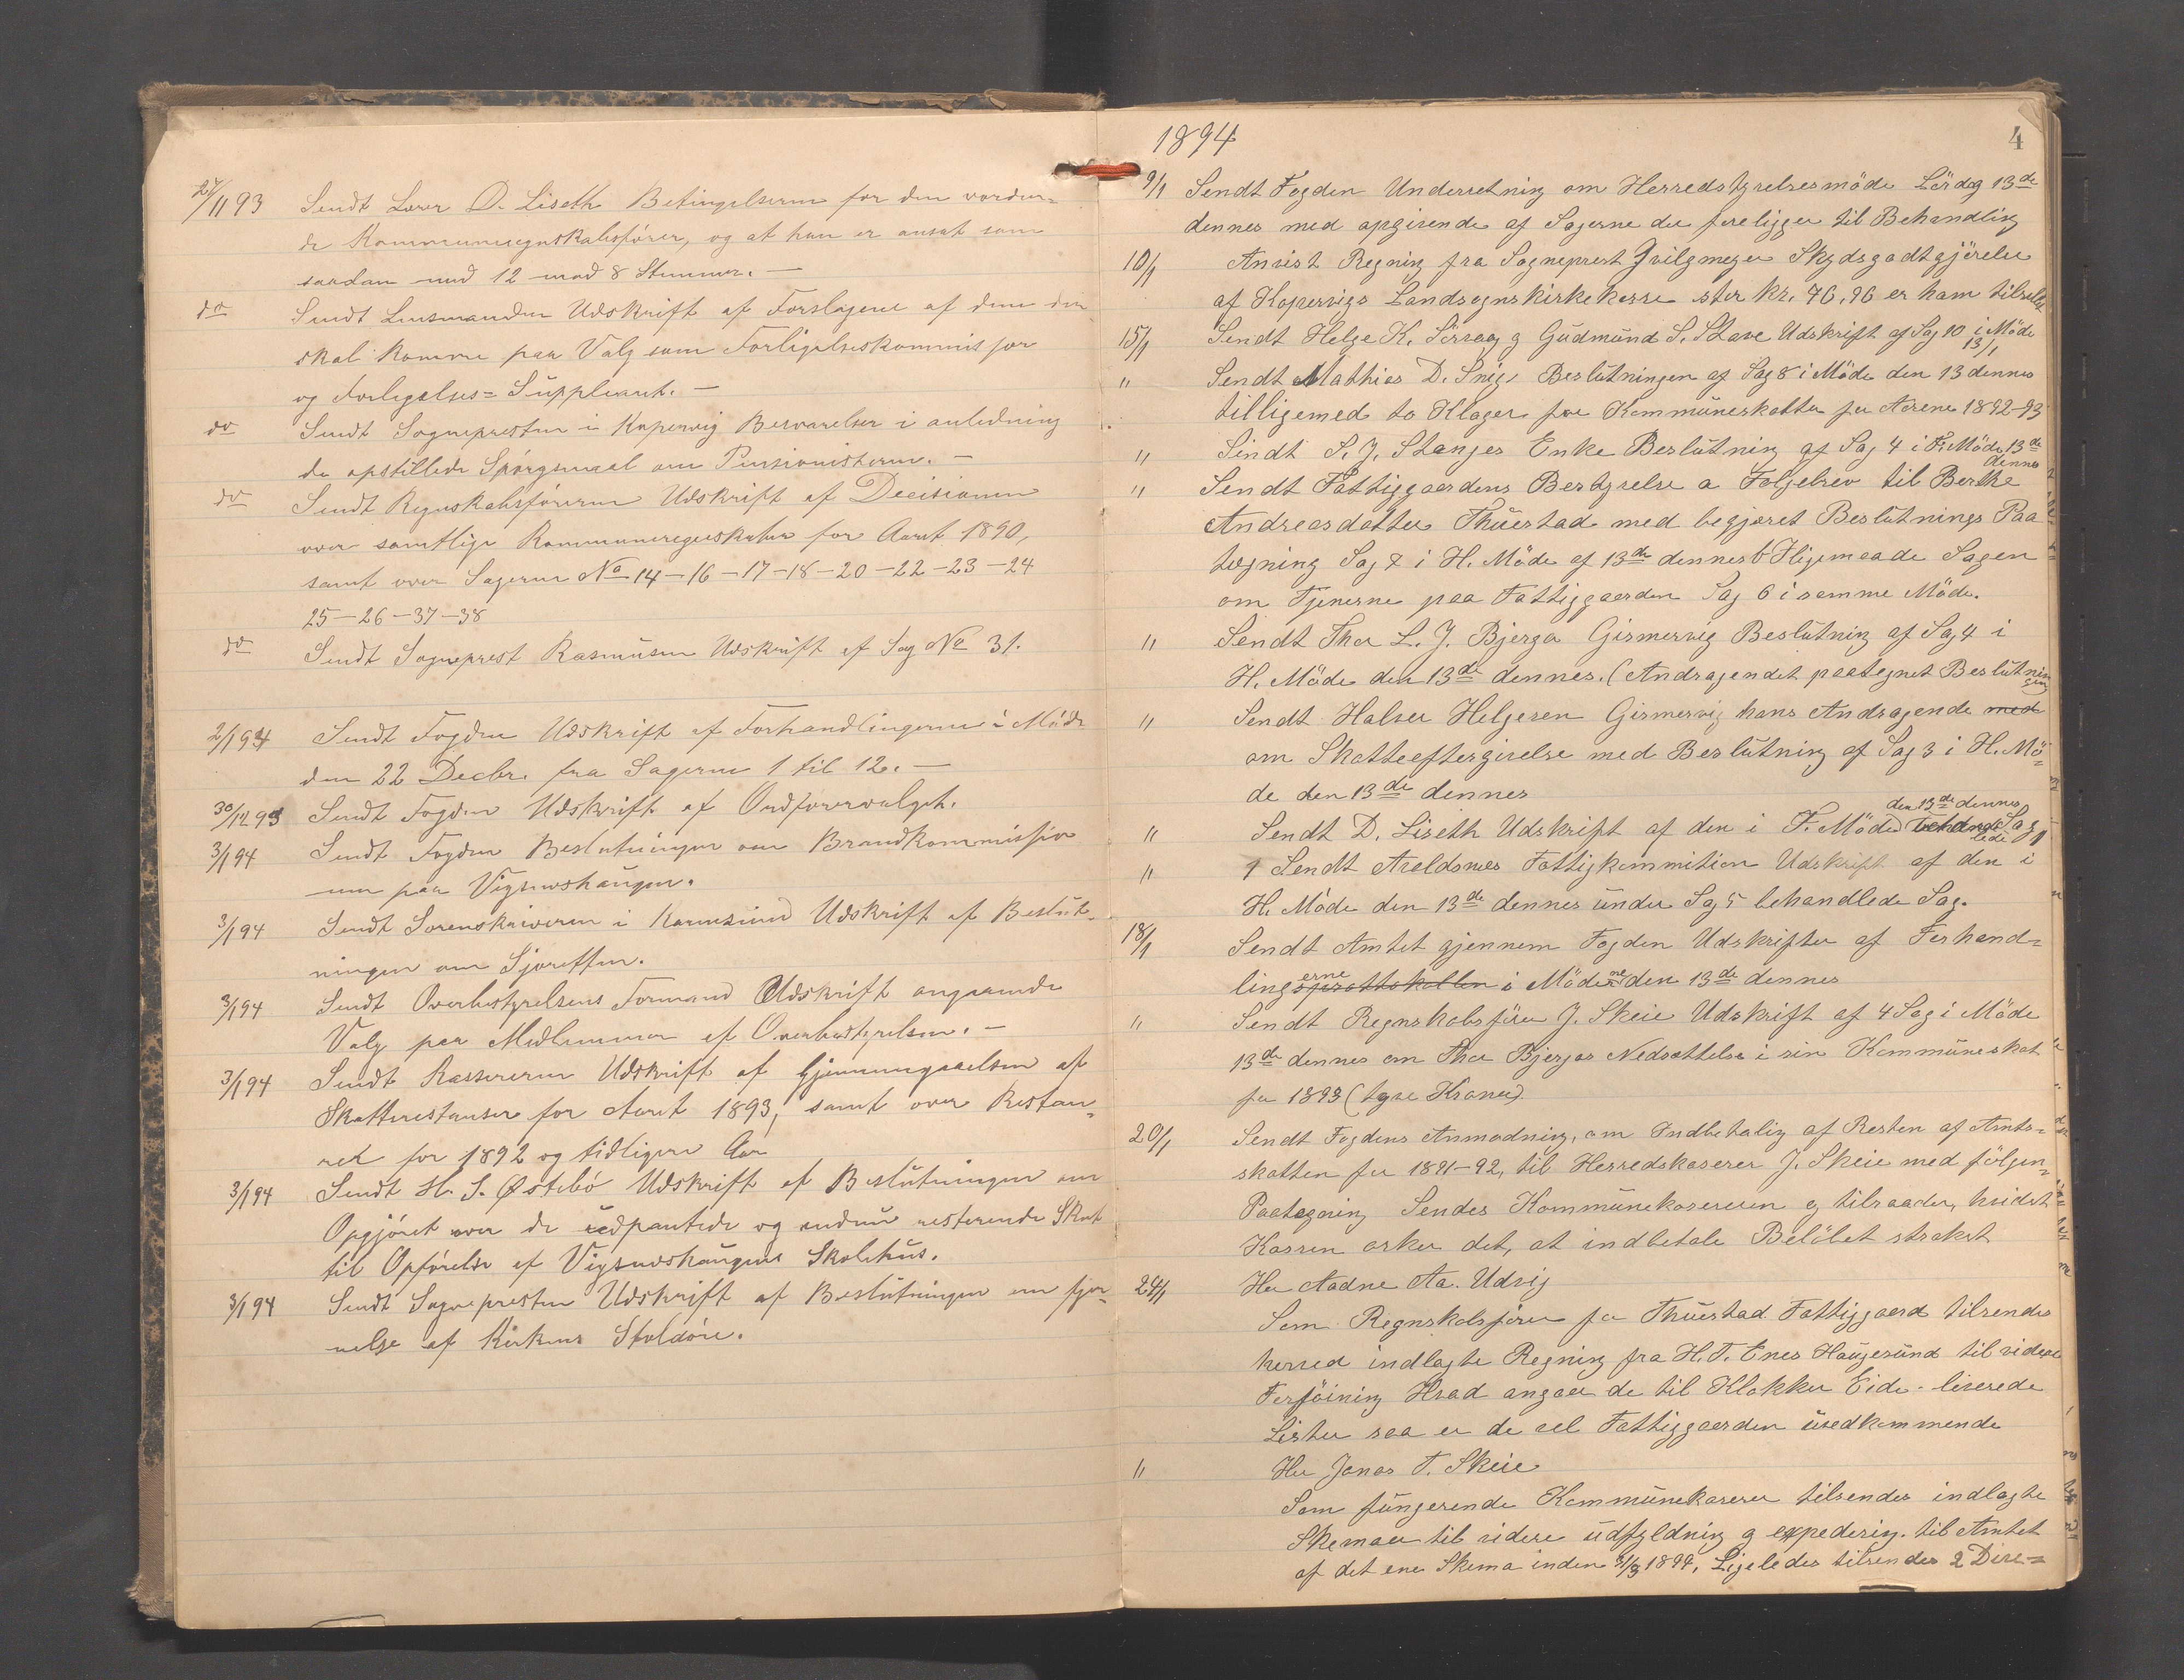 27/11 93 Sendt Lærer D. Liseth Betingelserne for den vorden-
de Kommuneregnskabsfører, og at han er ansat som
saadan med 12 mod 8 Stemmer. —
do Sendt Lensmanden Udskrift af Forslagene af dem der
skal komme paa Valg som Forligelseskommissær
og Forligelses= Suppleant. —
do Sendt Sognepresten i Kopervig Besvarelser i anledning
de opstillede Spørgsmaal om Pensionisterne. —
do Sendt Regnskabsføreren Udskrift af Decisionen
over samtlige Kommuneregnskaber for Aaret 1890,
samt over Sagerne No 14-16-17-18-20-22-23-24
25-26-37-38
do Sendt Sogneprest Rasmusen Udskrift af Sag No 31.
2/1 94 Sendt Fogden Udskrift af Forhandlingerne i Møde
den 22 Decbr. fra Sagerne 1 til 12. —
30/12 93 Sendt Fogden Udskrift af Ordførervalget.
3/1 94 Sendt Fogden Beslutningen om Brandkommissio
nen paa Vigsneshaugen.
3/1 94 Sendt Sorenskriveren i Karmsund Udskrift af Beslut-
ningen om Sjøretten.
3/1 94 Sendt Overbestyrelsens Formand Udskrift angaaende
Valg paa Medlemmer af Overbestyrelsen. —
3/1 94 Sendt Kassereren Udskrift af Gjennemgaaelsen af
Skatterestanser for Aaret 1893, samt over Restan-
ser for 1892 og tidligere Aar
3/1 94 Sendt H. S. Østebö Udskrift af Beslutningen om
Opgjöret over de udpantede og endnu resterende Skat
til Opförelse af Vigsneshaugens Skolehus.
3/1 94 Sendt Sognepresten Udskrift af Beslutningen om fjer-
nelse af Kirkens Stoldöre.
1894
4
9/1 Sendt Fogden Underretning om Herredstyrelsesmöde Lördag 13de
dennes med opgivende af Sagerne der foreligger til Behandling
10/1 Anvist Regning fra Sogneprest Zvilgmeyer Skydsgodtgjörelse
af Kopervigs Landsognskirkekasse stor Kr. 76,96 er ham tilsendt
15/1 Sendt Helge K. Sörvaag og Gudmund S. Stave Udskrift af Sag 10 i Möde
13/1
" Sendt Mathias D. Snig, Beslutningen af Sag 8 i Möde den 13 dennes
tilligemed to Klager fra Kommuneskatten for Aarene 1892-93
" Sendt S. J. Stanges Enke Beslutning af Sag 4 i F. Möde 13de
dennes
" Sendt Fattiggaardens Bestyrelse a Følgebrev til Berthe
Andreasdatter Thuestad med begjæret Beslutnings Paa
tegning Sag 7 i H. Möde af 13de dennes b Ligemaade Sagen
om Tjenerne paa Fattiggaarden Sag 6 i samme Möde.
" Sendt Thor L. J. Bjerga Gismervig Beslutning af Sag 4 i
H. Möde den 13de dennes. (Andragendet paategnet Beslutnin
gen)
" Sendt Halvor Helgesen Gismervig hans Andragende med
om Skatteeftergivelse med Beslutning af Sag 3 i H. Mö=
de den 13de dennes
den 13de dennes
" Sendt D. Liseth Udskrift af den i F. Möde behand Sag
lede 1
" 1 Sendt Avaldsnes Fattigkommition Udskrift af den i
H. Möde den 13de dennes under Sag 5 behandlede Sag.
18/1 Sendt Amtet gjennem Fogden Udskrifter af Forhand=
erne ne
lingsprottokollen i Möde den 13de dennes
" Sendt Regnskabsförer J. Skeie Udskrift af 4 Sag i Möde
13de dennes om Thor Bjergas Nedsættelse i sin Kommuneskat
for 1893 (tyve Kroner).
20/1 Sendt Fogdens Anmodning, om Indbetaling af Resten af Amts=
skatten for 1891-92, til Herredskaserer J. Skeie med fölgen=
Paategning Sendes Kommunekasereren og tilraader, hvidst
Kassen orker det, at indbetale Belöbet strakst
24/1 Hr Aadne Aa. Udvig
Som Regnskabsförer for Thuestad Fattiggaard tilsendes
herved indlagte Regning fra H. T. Enes Haugesund til videre
Forföining Hvad angaar de til Klokker Eide leverede
Lister saa er de vel Fattiggaarden uvedkommende
" Hr Jonas T. Skeie
Som fungerende Kommunekaserer tilsendes indlagte
Skemaer til videre udfyldning og expedering. til Amtet
af det ene Skema inden 31/3 1894, Ligeledes tilsendes 2 Dire=